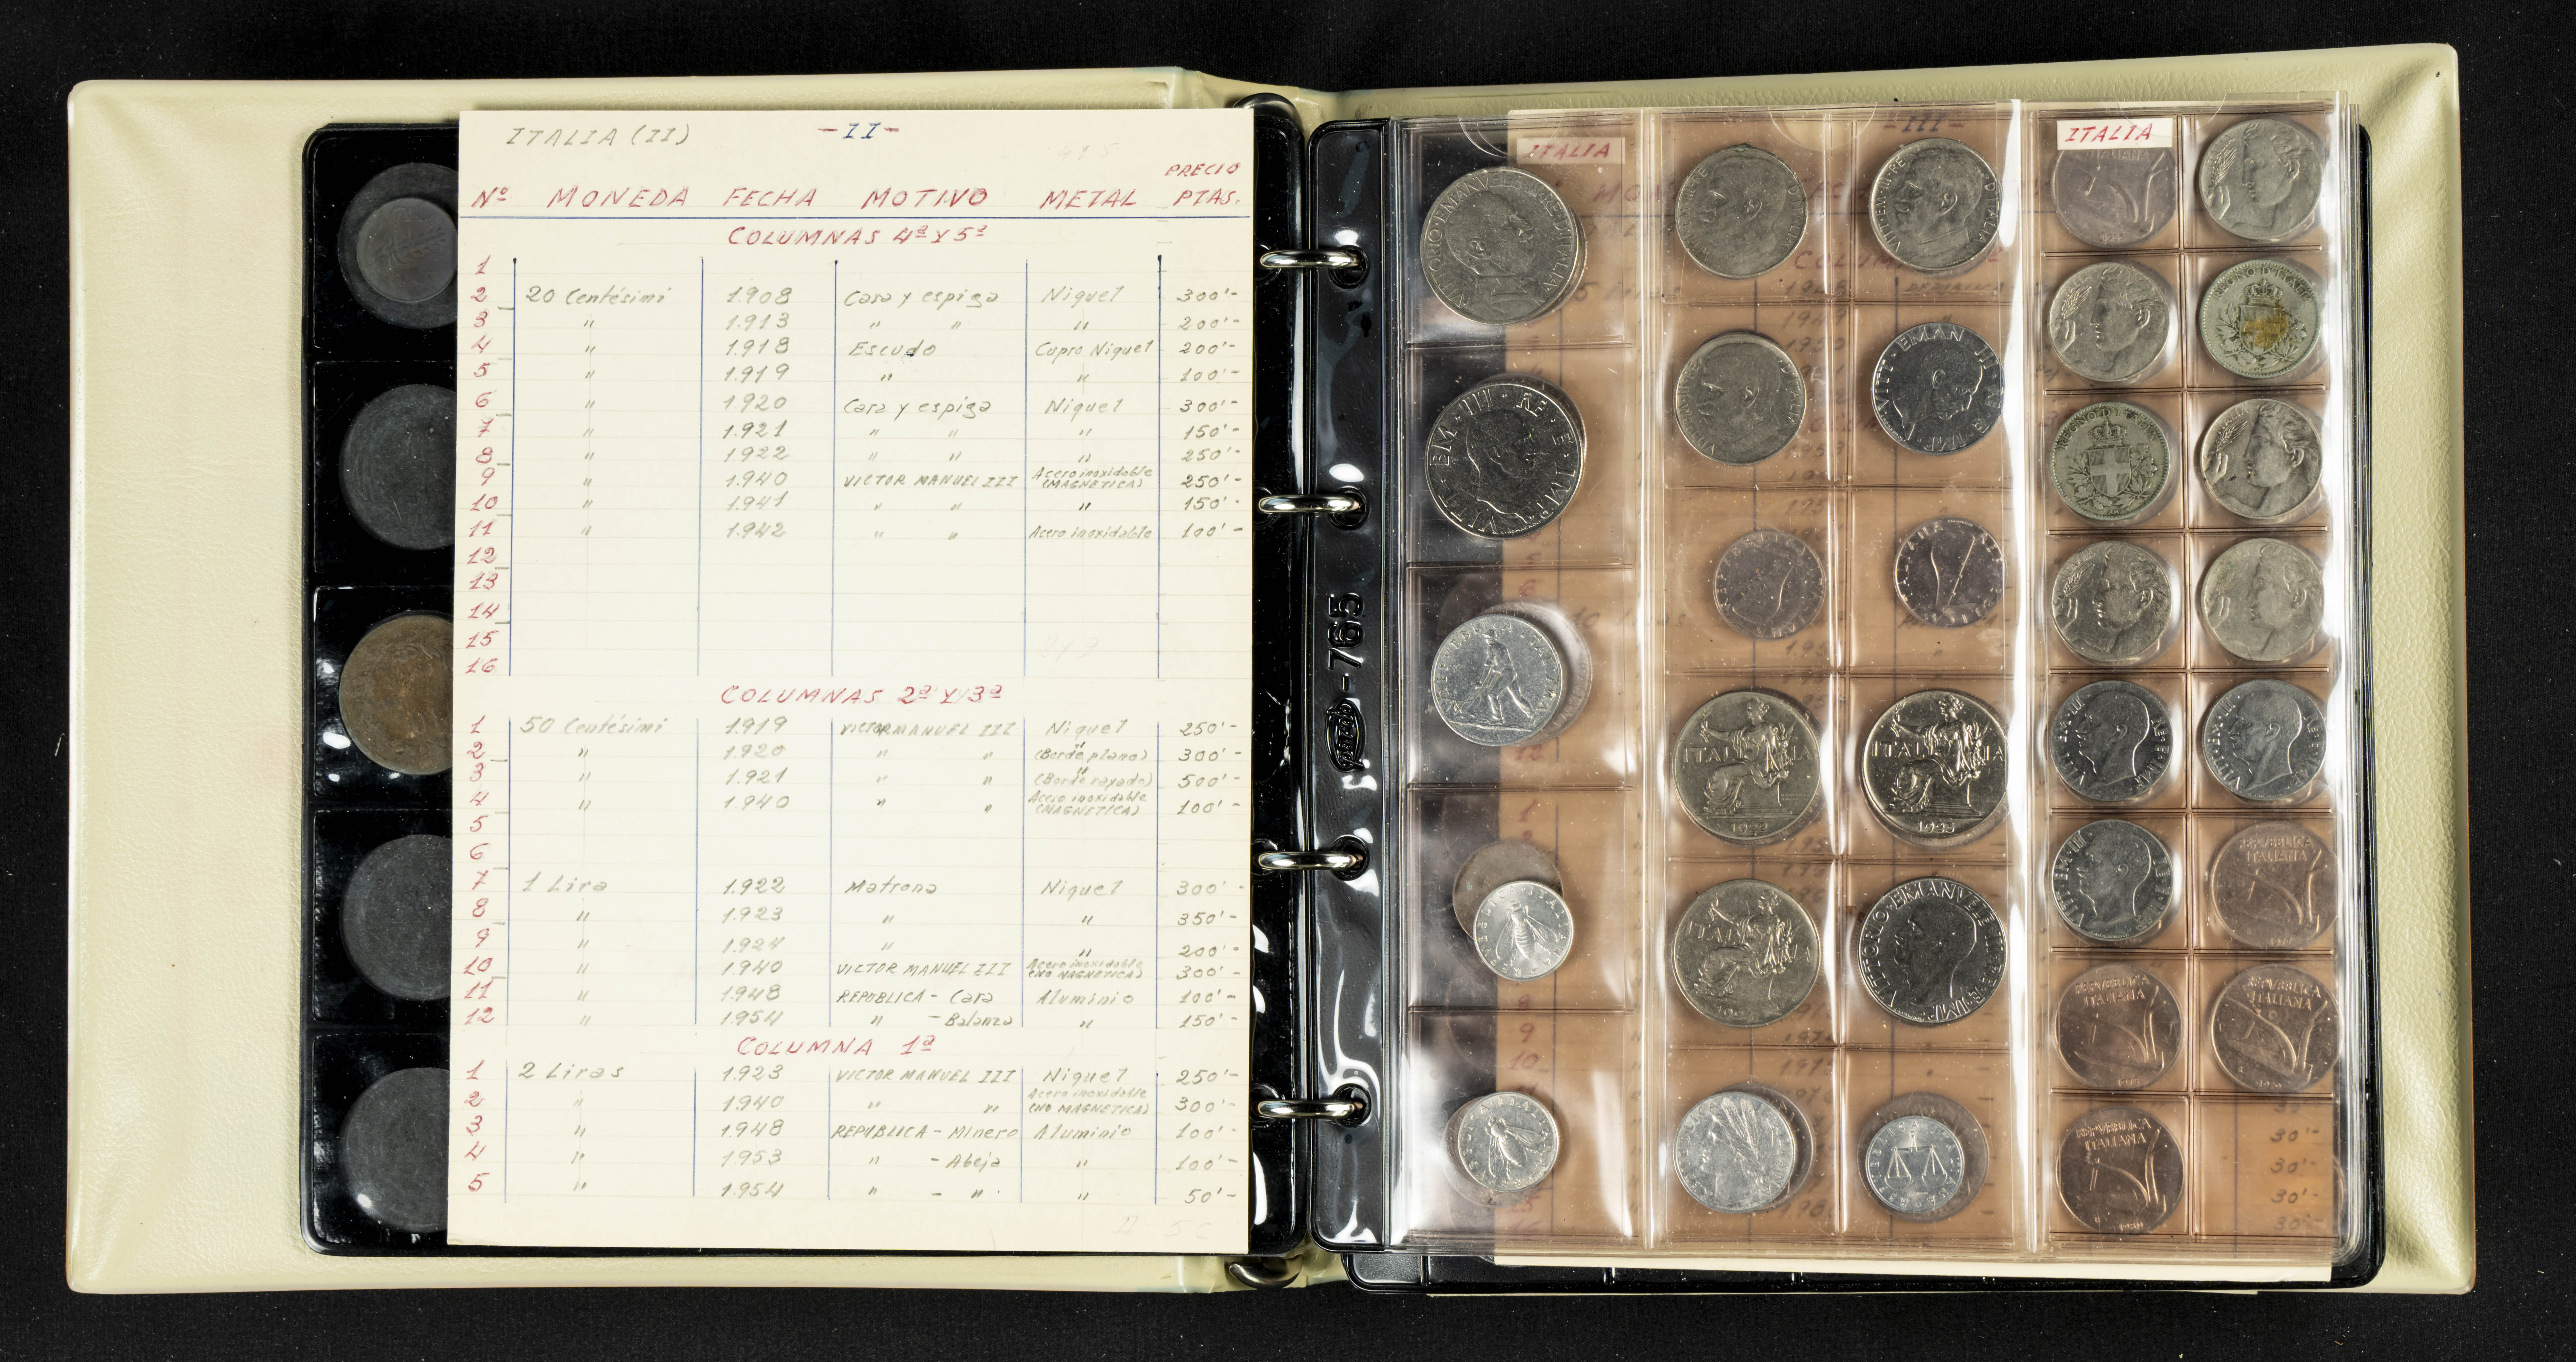 ITALIA (II) -II-
PRECIO
Nº MONEDA FECHA MOTIVO METAL PTAS.
COLUMNAS 4ª Y 5ª
1
2 20 Centésimi 1.908 Cara y espiga Niquel 300'-
3 " 1.913 " " " 200'-
4 " 1.918 Escudo Cupro Niquel 200'-
5 " 1.919 " " 100'-
6 " 1.920 Cara y espiga Niquel 300'-
7 " 1.921 " " " 150'-
8 " 1.922 " " " 250'-
9 " 1.940 VICTOR MANUEL III Acero inoxidable (MAGNETICA) 250'-
10 " 1.941 " " " 150'-
11 " 1.942 " " Acero inoxidable 100'-
12
13
14
15
16
COLUMNAS 2ª Y 3ª
1 50 Centésimi 1.919 VICTOR MANUEL III Niquel 250'-
2 " 1.920 " " " (Borde plano) 300'-
3 " 1.921 " " " (Borde rayado) 500'-
4 " 1.940 " " Acero inoxidable (MAGNETICA) 100'-
5
6
7 1 Lira 1.922 Matrona Niquel 300'-
8 " 1.923 " " 350'-
9 " 1.924 " " 200'-
10 " 1.940 VICTOR MANUEL III Acero inoxidable (NO MAGNETICA) 300'-
11 " 1.948 REPUBLICA - Cara Aluminio 100'-
12 " 1.954 " - Balanza " 150'-
COLUMNA 1ª
1 2 Liras 1.923 VICTOR MANUEL III Niquel 250'-
2 " 1.940 " " Acero inoxidable (NO MAGNETICA) 300'-
3 " 1.948 REPUBLICA - Minero Aluminio 100'-
4 " 1.953 " - Abeja " 100'-
5 " 1.954 " - " " 50'-
-765
ITALIA
-III-
ITALIA
VITTORIO EMANVELE III RE D'ITALIA
VITT·EM·III·RE·E·IMP·
VITT·EMAN·III·RE·E·IMP·
REGNO D'ITALIA
REGNO D'ITALIA
ITALIA
1922
ITALIA
1923
ITALIA
VITTORIO·EMANVELE·III·RE·E·IMP·
VITT·EM·III RE·E·IMP
VITT·EM·III RE·E·IMP
VITT·EM·III RE·E·IMP
REPVBBLICA
ITALIANA
REPVBBLICA
ITALIANA
REPVBBLICA
ITALIANA
REPVBBLICA
ITALIANA
30'-
30'-
30'-
30'-